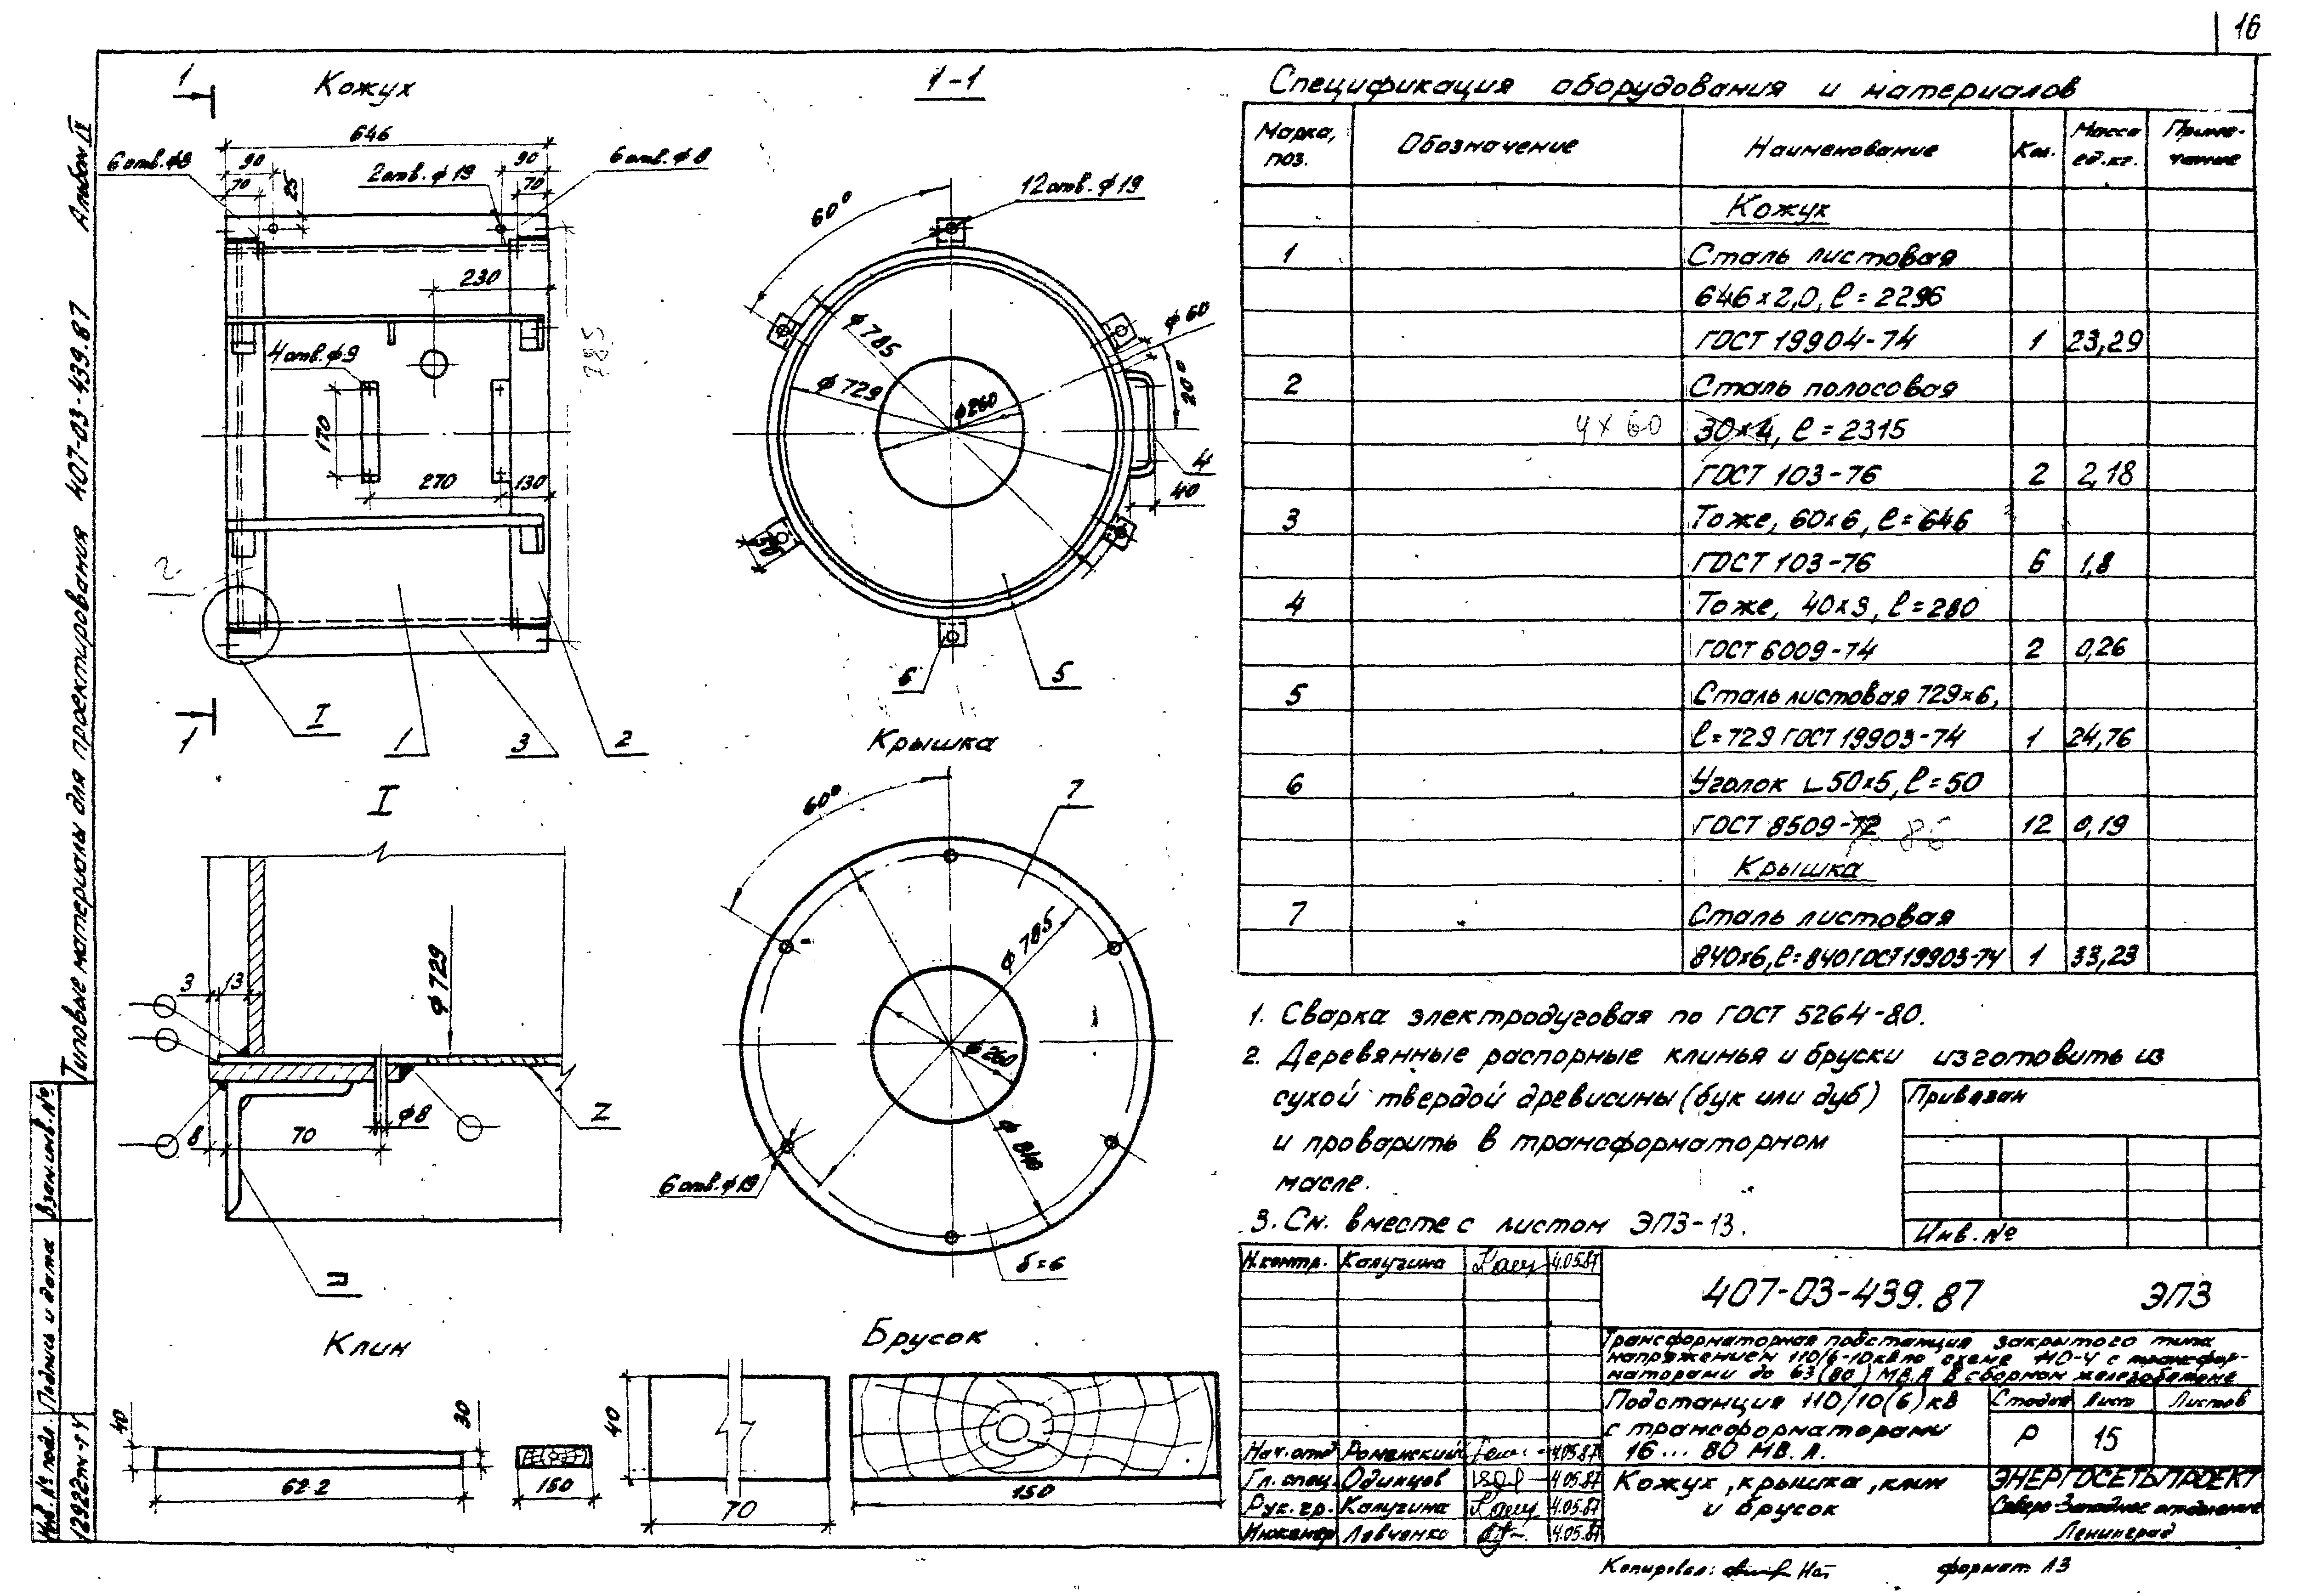 16
Альбом IV
Типовые материалы для проектирования 407-03-439.87
Взам.инв.№
Подпись и дата
Инв.№ подл.
12922тм-т4
1
Кожух
646
6 отв. ф8
90
70
25
2 отв. ф19
90
70
6 отв. ф8
230
785
4 отв. ф9
170
270
130
2
I
1
1
3
2
1-1
60°
12 отв. ф19
ф785
ф60
ф729
ф260
20°
4
40
50
6
5
I
3
13
ф729
8
70
ф8
2
Крышка
60°
7
ф785
ф260
ф840
6 отв. ф19
δ=6
Клин
40
30
622
150
Брусок
40
70
150
Спецификация оборудования и материалов
Марка, поз.
Обозначение
Наименование
Кол.
Масса ед.кг.
Приме-чание
Кожух
1 Сталь листовая
646×2,0, ℓ=2296
ГОСТ 19904-74 1 23,29
2 Сталь полосовая
4×60 30×4, ℓ=2315
ГОСТ 103-76 2 2,18
3 Тоже, 60×6, ℓ=646
ГОСТ 103-76 6 1,8
4 Тоже, 40×3, ℓ=280
ГОСТ 6009-74 2 0,26
5 Сталь листовая 729×6,
ℓ=729 ГОСТ 19903-74 1 24,76
6 Уголок ∟50×5, ℓ=50
ГОСТ 8509-72 86 12 0,19
Крышка
7 Сталь листовая
840×6, ℓ=840 ГОСТ 19903-74 1 33,23
1. Сварка электродуговая по ГОСТ 5264-80.
2. Деревянные распорные клинья и бруски изготовить из
сухой твердой древисины (бук или дуб)
и проварить в трансформаторном
масле.
3. См. вместе с листом ЭПЗ-13.
Привязан
Инв.№
Н.контр. Калугина 4.05.87
407-03-439.87 ЭПЗ
Трансформаторная подстанция закрытого типа
напряжением 110/6-10кв по схеме 110-4 с трансфор-
маторами до 63(80) МВ.А в сборном железобетоне
Подстанция 110/10(6)кв
с трансформаторами
16...80 МВ.А.
Стадия Лист Листов
Р 15
Нач.отд Роменский 4.05.87
Гл.спец. Одинцов 4.05.87
Рук.гр. Калугина 4.05.87
Инженер Левченко 4.05.87
Кожух, крышка, клин
и брусок
ЭНЕРГОСЕТЬПРОЕКТ
Северо-Западное отделение
Ленинград
Копировал:
формат А3